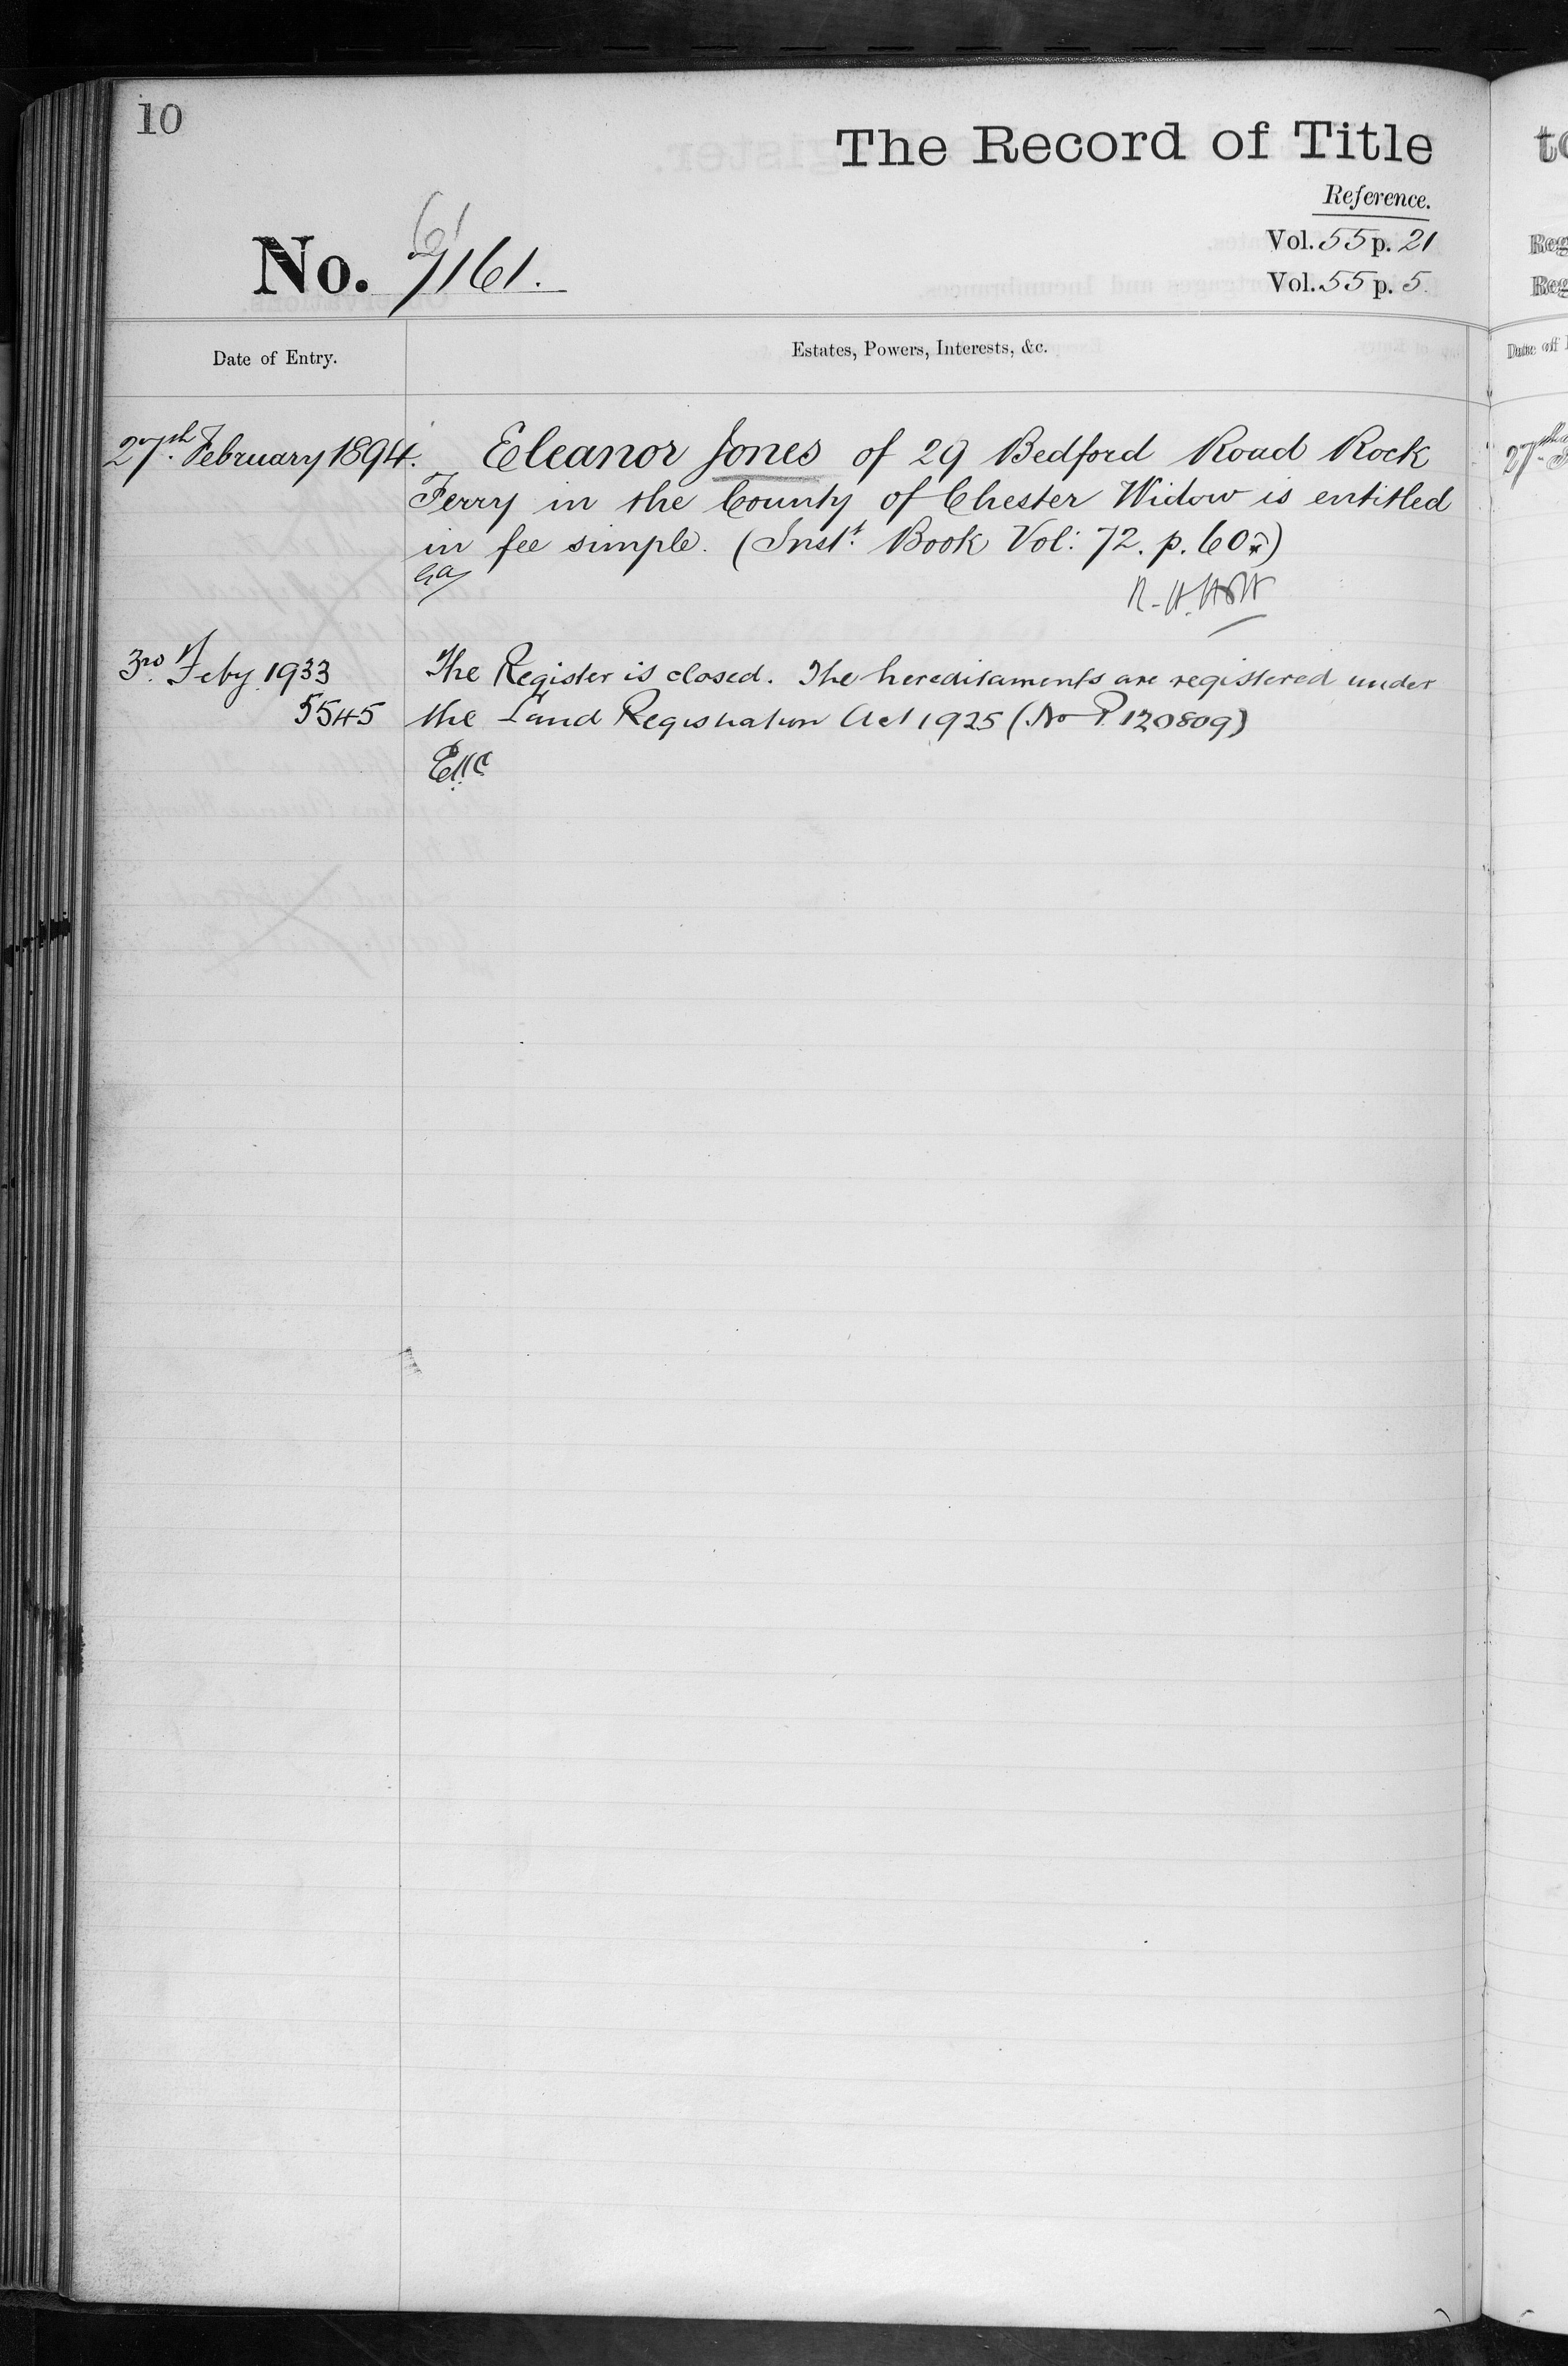 10
The Record of Title
Reference.
Vol. 55 p. 21
No. 7161.
Vol. 55 p. 5.
Date of Entry.
Estates, Powers, Interests, &c.
27th. February 1894.
Eleanor Jones of 29 Bedford Road Rock
Ferry in the County of Chester Widow is entitled
in fee simple. (Inst.t Book Vol: 72. p. 60
3rd. Feby. 1933
The Register is closed. The hereditaments are registered under
5545
the Land Registration Act 1925 (No P. 120809)